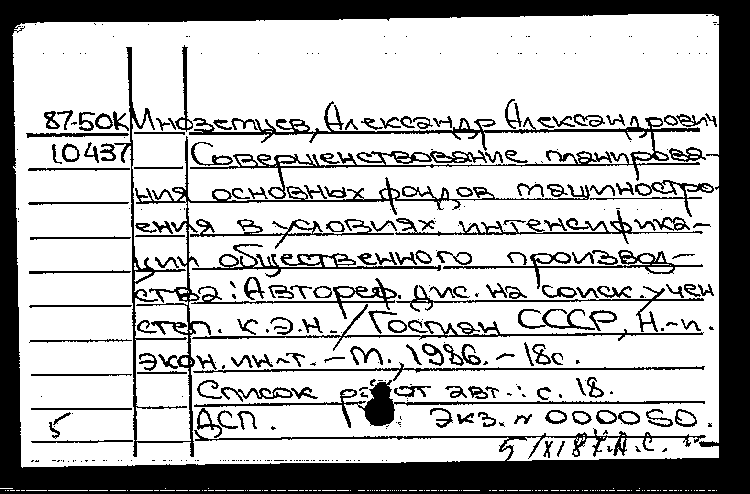 87-50К Иноземцев, Александр Александрович
10437 Совершенствование планирова-
ния основных фондов машиностро-
ения в условиях интенсифика-
ции общественного производ-
ства: Автореф. дис. на соиск. учен
степ. к.э.н. / Госплан СССР, Н.-и.
экон. ин-т. - М., 1986. - 18с.
Список работ авт.: с. 18.
5 ДСП. Экз. N 000060.